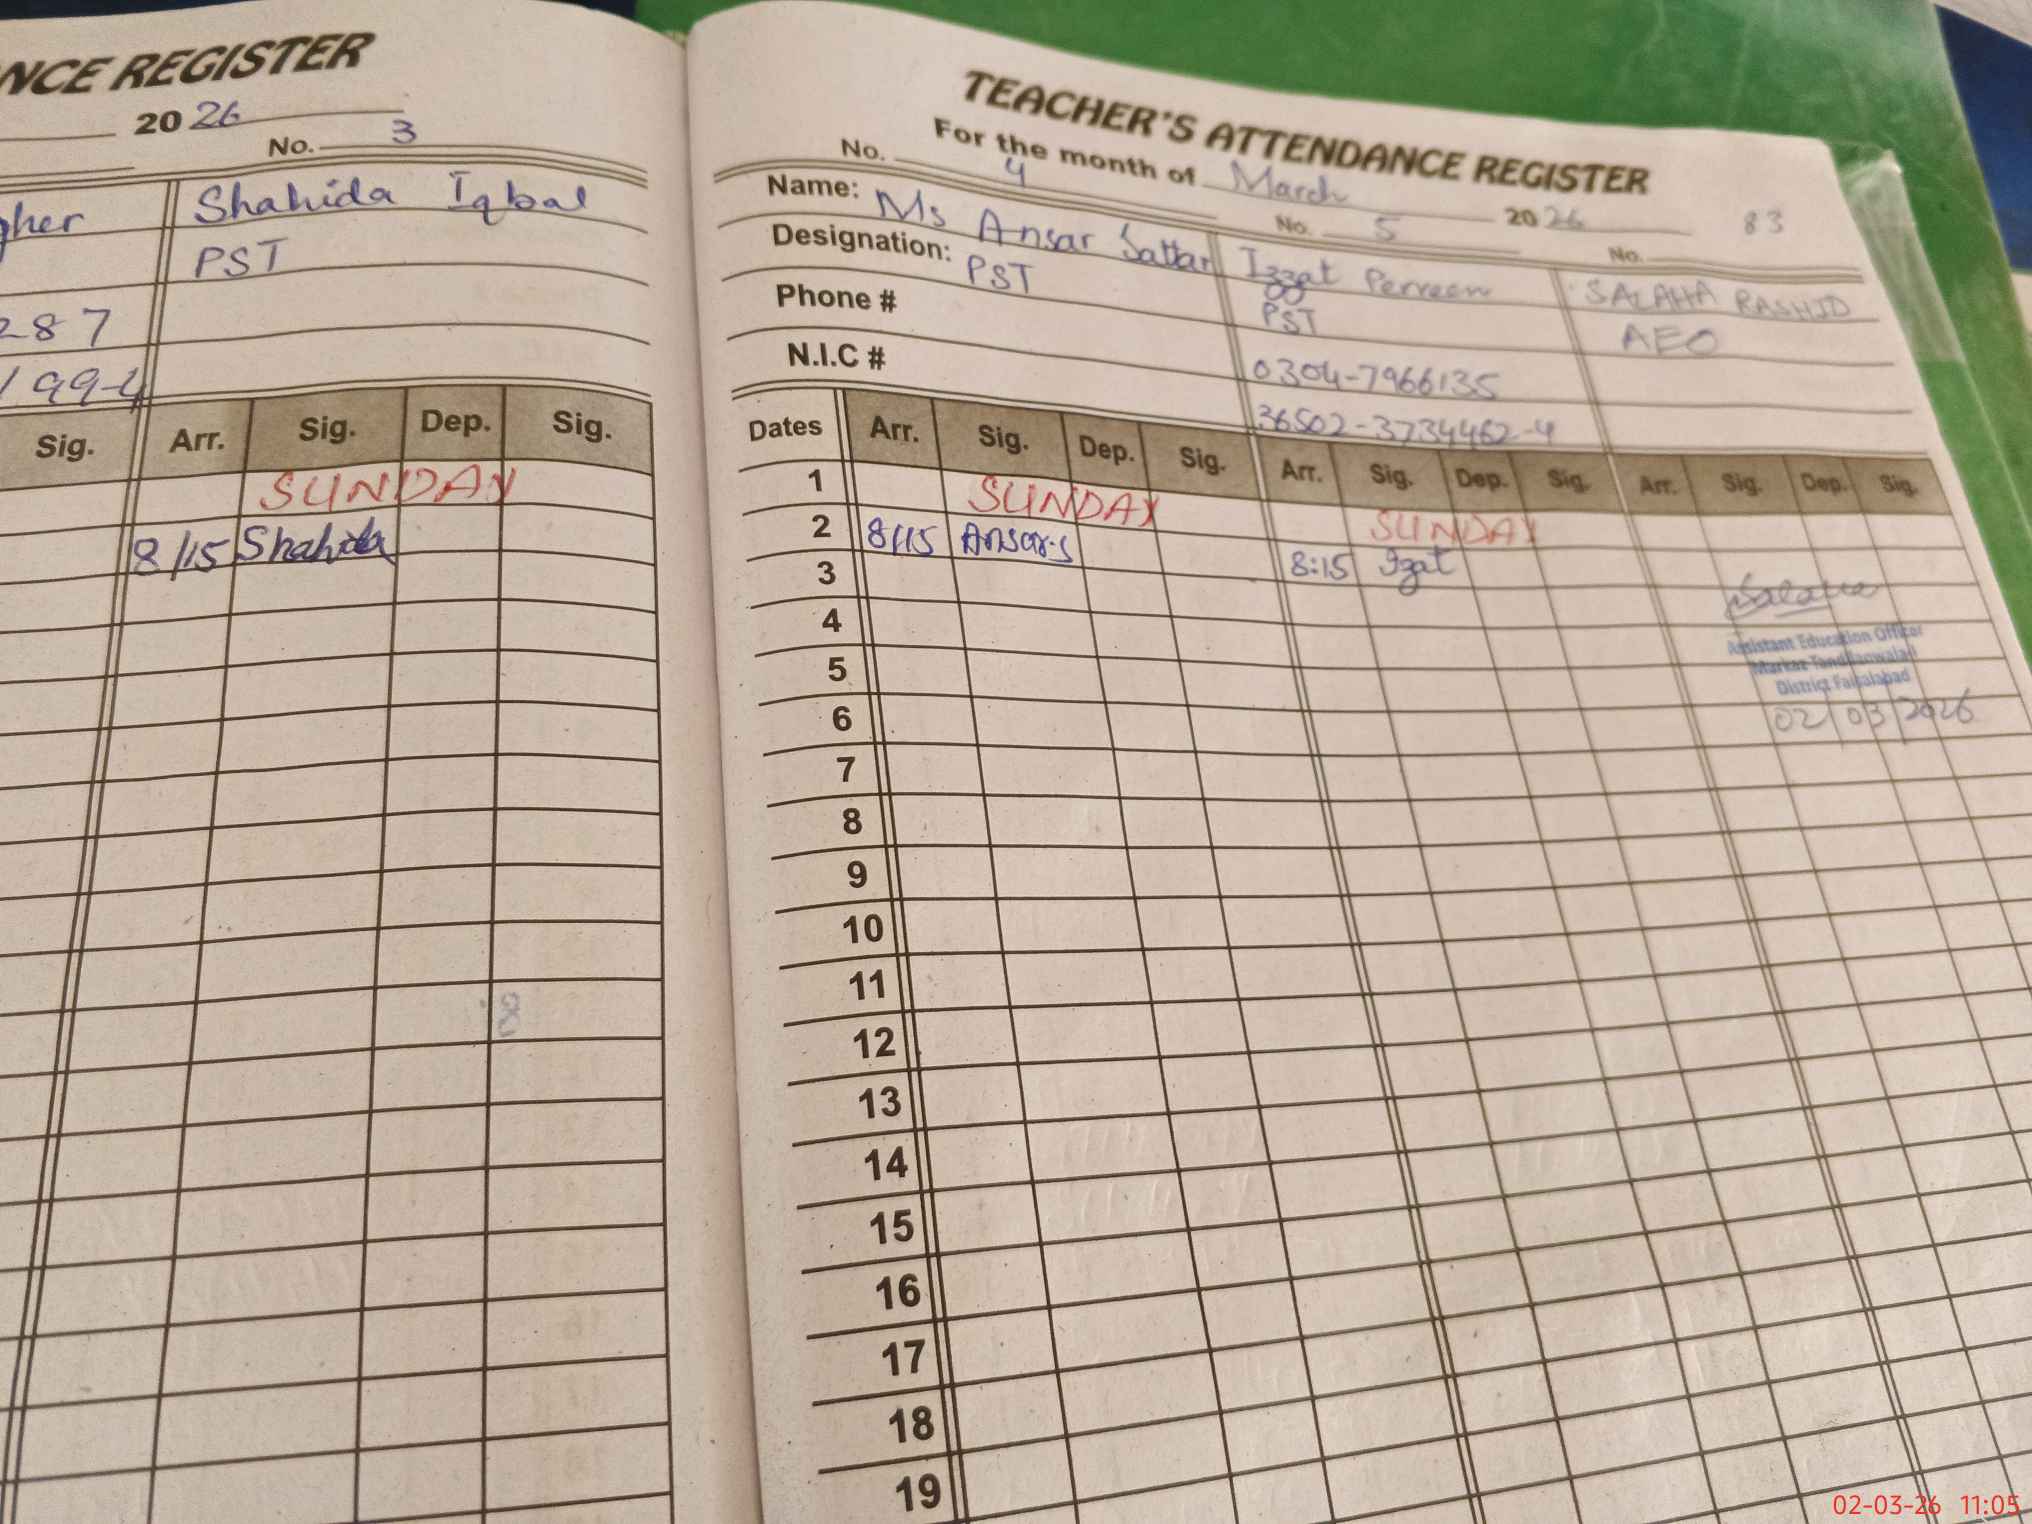 NCE REGISTER
20 26
No. 3
gher Shahida Iqbal
PST
287
199-4
Sig. Arr. Sig. Dep. Sig.
SUNDAY
8/15 Shahida
TEACHER'S ATTENDANCE REGISTER
For the month of March 2026 83
No. 4 No. 5 No.
Name: Ms Ansar Sattar Izzat Perveen SALAHA RASHID
Designation: PST PST AEO
Phone # 0304-7966135
N.I.C # 36502-3734462-4
Dates Arr. Sig. Dep. Sig. Arr. Sig. Dep. Sig. Arr. Sig. Dep. Sig.
1 SUNDAY SUNDAY
2 8/15 Ansar.s 8:15 Izat
3
Assistant Education Officer
Markaz Tandlianwala-I
District Faisalabad
02/03/2026
4
5
6
7
8
9
10
11
12
13
14
15
16
17
18
19
02-03-26 11:05